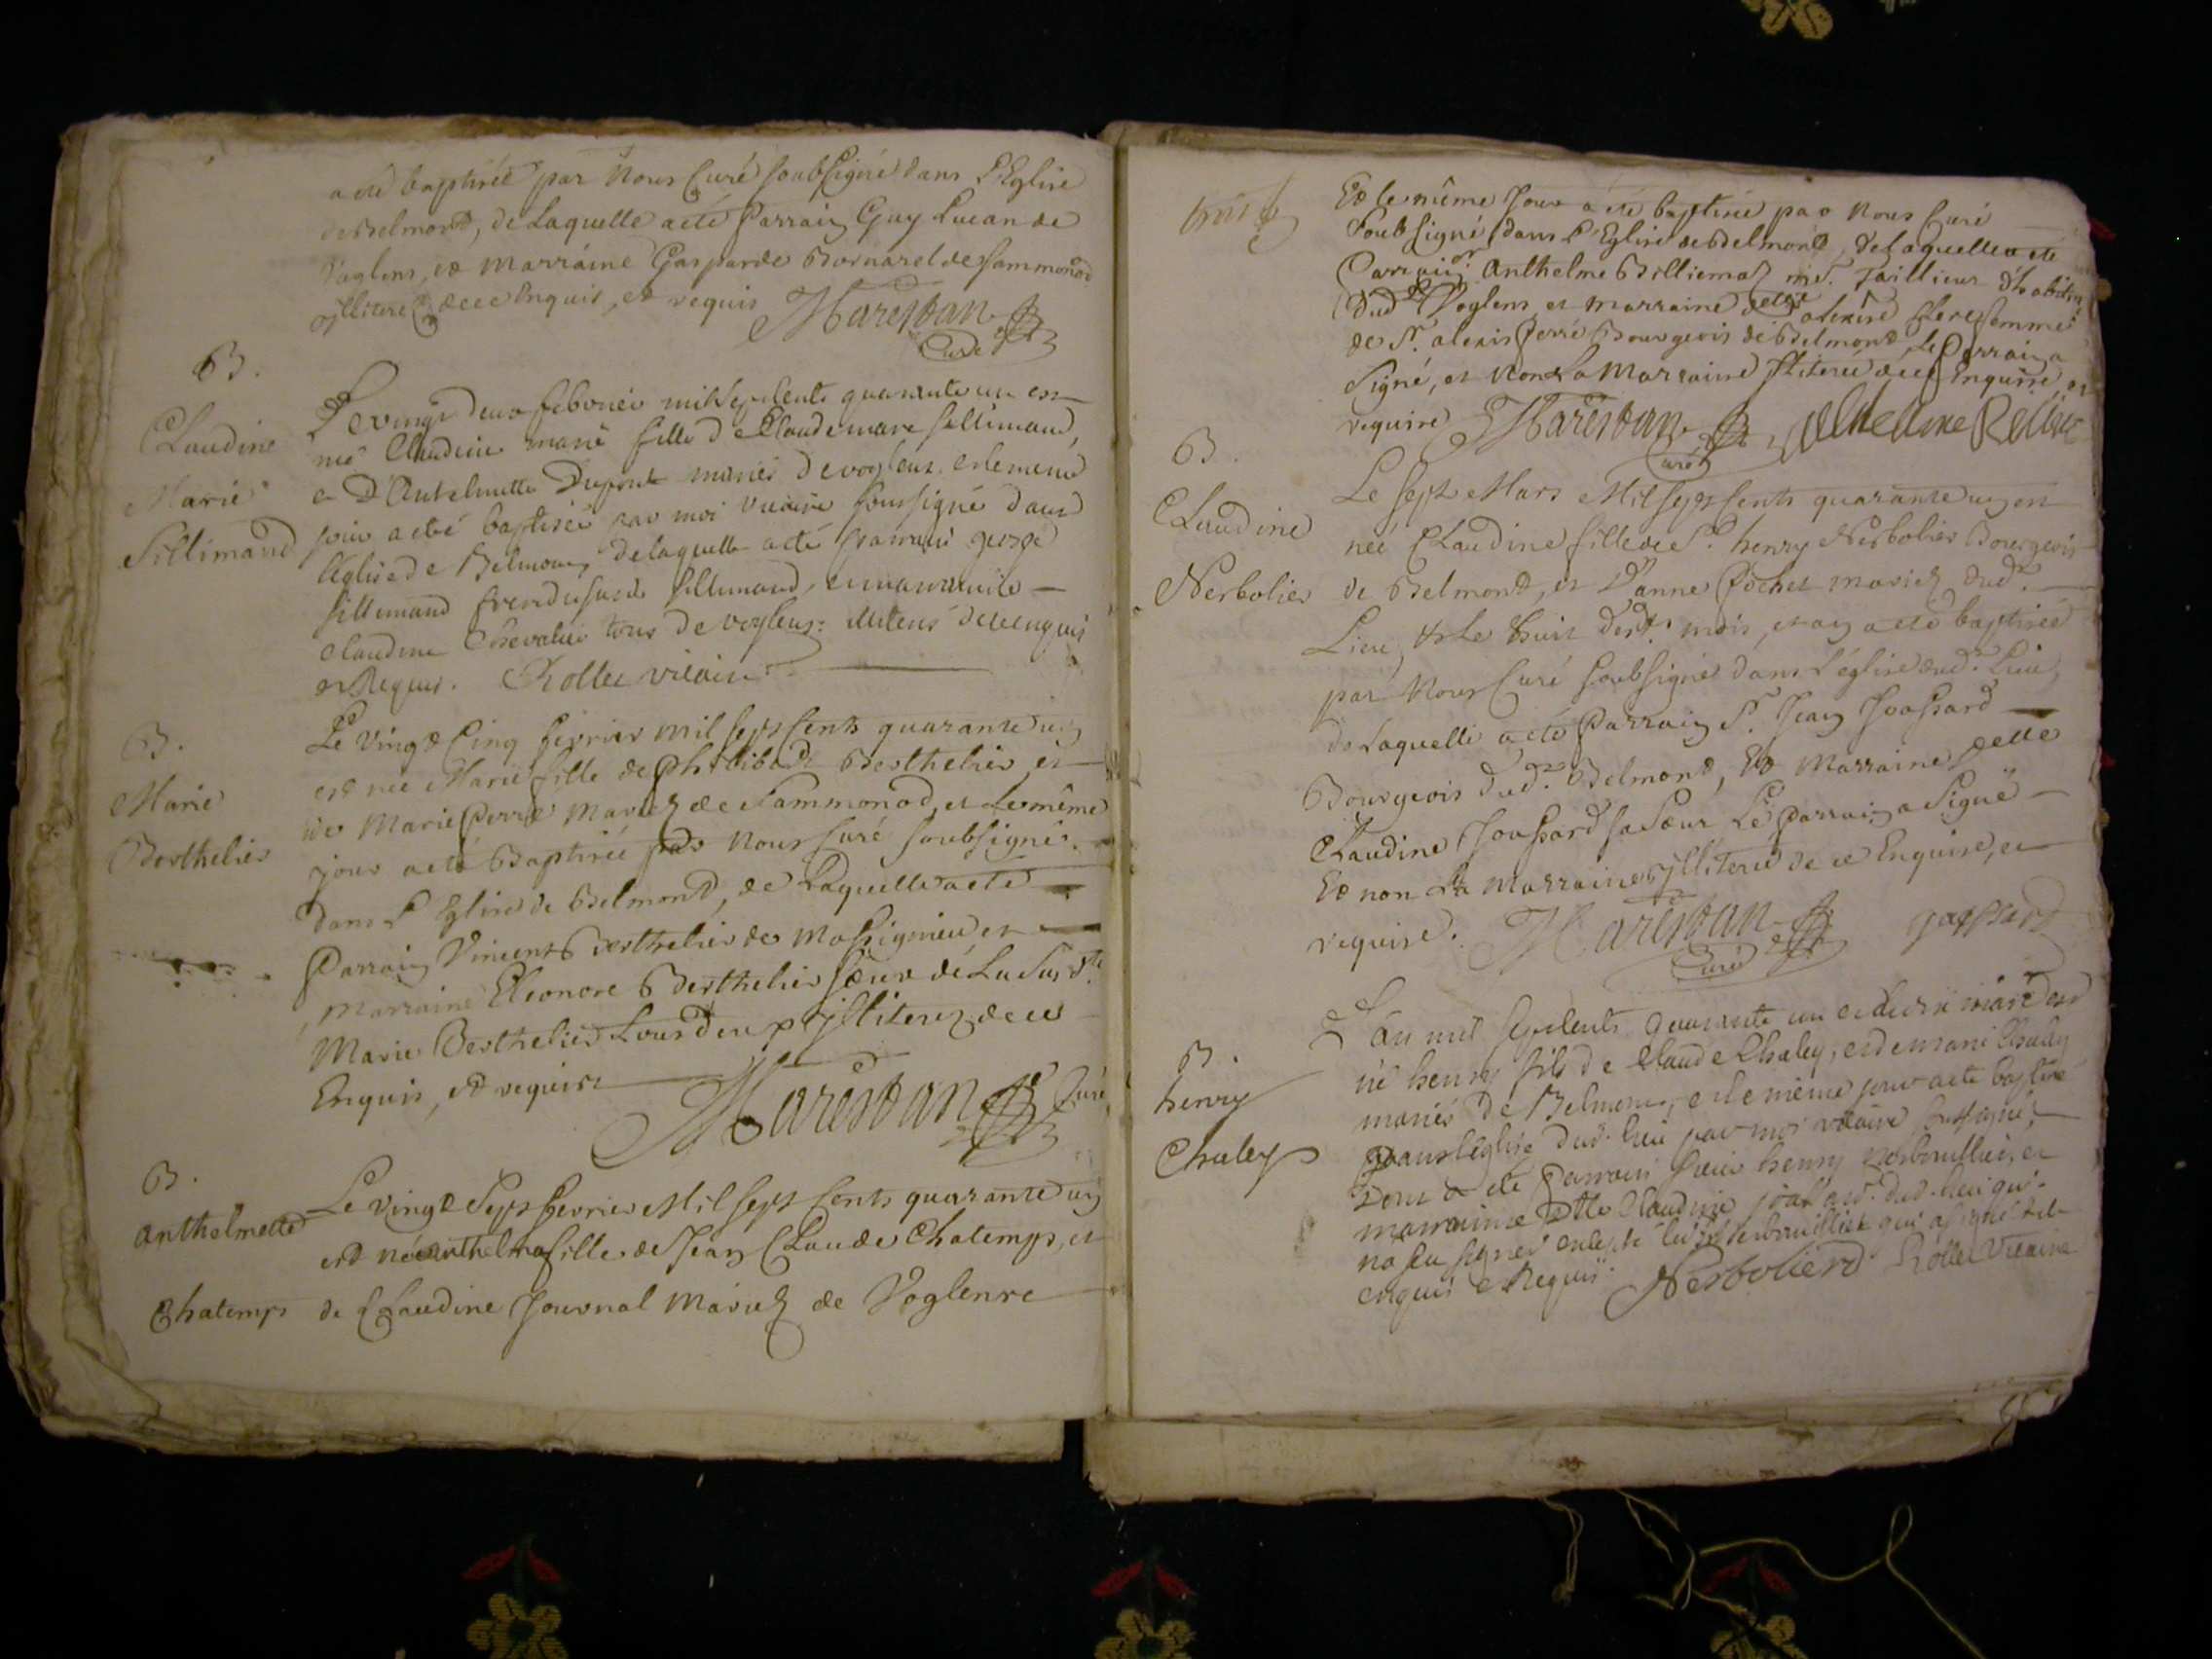 a été baptisée par Nous Curé soubsigné dans L'Eglise
de Belmont, de Laquelle a été Parrain Guy Lucan de
Voglens, et Marraine Gasparde Bornarel de Sammonod
illiterez de ce Enquis, et requis Marestan
Curé
B.
Claudine
Marie
Sillimand
Le vingt deux febvrier mil sept cents quarante un est
née Claudine marie fille de Claude marc sillimand,
et D'Antelmette Dupont mariés de voglens. et le meme
jour a eté baptisée par moi vicaire soussigné dans
l'Eglise de Belmont, de laquelle a eté parrain george
sillimand frere du susd. sillimand, et marraine
claudine Chevalier tous de voglens: illiterés de ce enquis
et Requis. Rollet vicaire
B.
Marie
Berthelier
Le Vingt Cinq fevrier mil sept Cents quarante un
est née Marie fille de Philibert Berthelier et
de Marie Perret Mariez de Sammonod, et Le même
jour a eté Baptisée par Nous Curé soubsigné
dans L'Eglise de Belmont, de Laquelle a eté
Parrain Vincent Berthelier de Massignieu et
Marraine Eleonore Berthelier soeur de La Susd.te
Marie Berthelier Tous deux illiterez de ce
Enquis, et requis
Marestan Curé
B.
Anthelmette
Chatemps
Le vingt Sept fevrier Mil sept Cents quarante un
est née Anthelma fille de Jean Claude Chatemps, et
de Claudine Journal Mariez de Voglenre
Et le même Jour a été baptisée par Nous Curé
Soubsigné dans L'Eglise de Belmont, de Laquelle a été
Parrain Sr. Anthelme Billiemaz me. Taillieur d'habits
dud. Voglens et marraine delle alexise ferre femme
de Sr. alexis ferré Bourgeois de Belmont, Le Parrain a
Signé, et Non La Marraine illiterée de ce Enquise et
requise Marestan Curé
B.
Claudine
Nerbolier
Le Sept Mars Mil sept Cents quarante un est
née Claudine fille de Sr. henry Nerbolier Bourgeois
de Belmont, et D'anne Pochet mariez dud.
Lieu, et Le huit dud. mois, et an a eté baptisée
par Nous Curé soubsigné dans L'église dud. Lieu,
de Laquelle a eté Parrain Sr. Jean Joassard
Bourgeois dud. Belmont, Et Marraine delle
Claudine Joassard sa Soeur Le Parrain a Signé
Et non La Marraine illiterée de ce Enquise, et
requise. Marestan Curé joassard
B.
henry
Chaley
L'an mil sept cents quarante un et le dix mars est
né henry fils de Claude Chaley, et de marie Chaley
mariés de Belmont, et le même jour a eté baptisé
dans l'Eglise dud. lieu par moi vicaire soussigné,
dont a eté parrain sieur henry Nerboullier, et
marraine Dlle Claudine joassard dud. lieu qui
na seu signer
enquis et Requis. Nerbolierd Rollet Vicaire